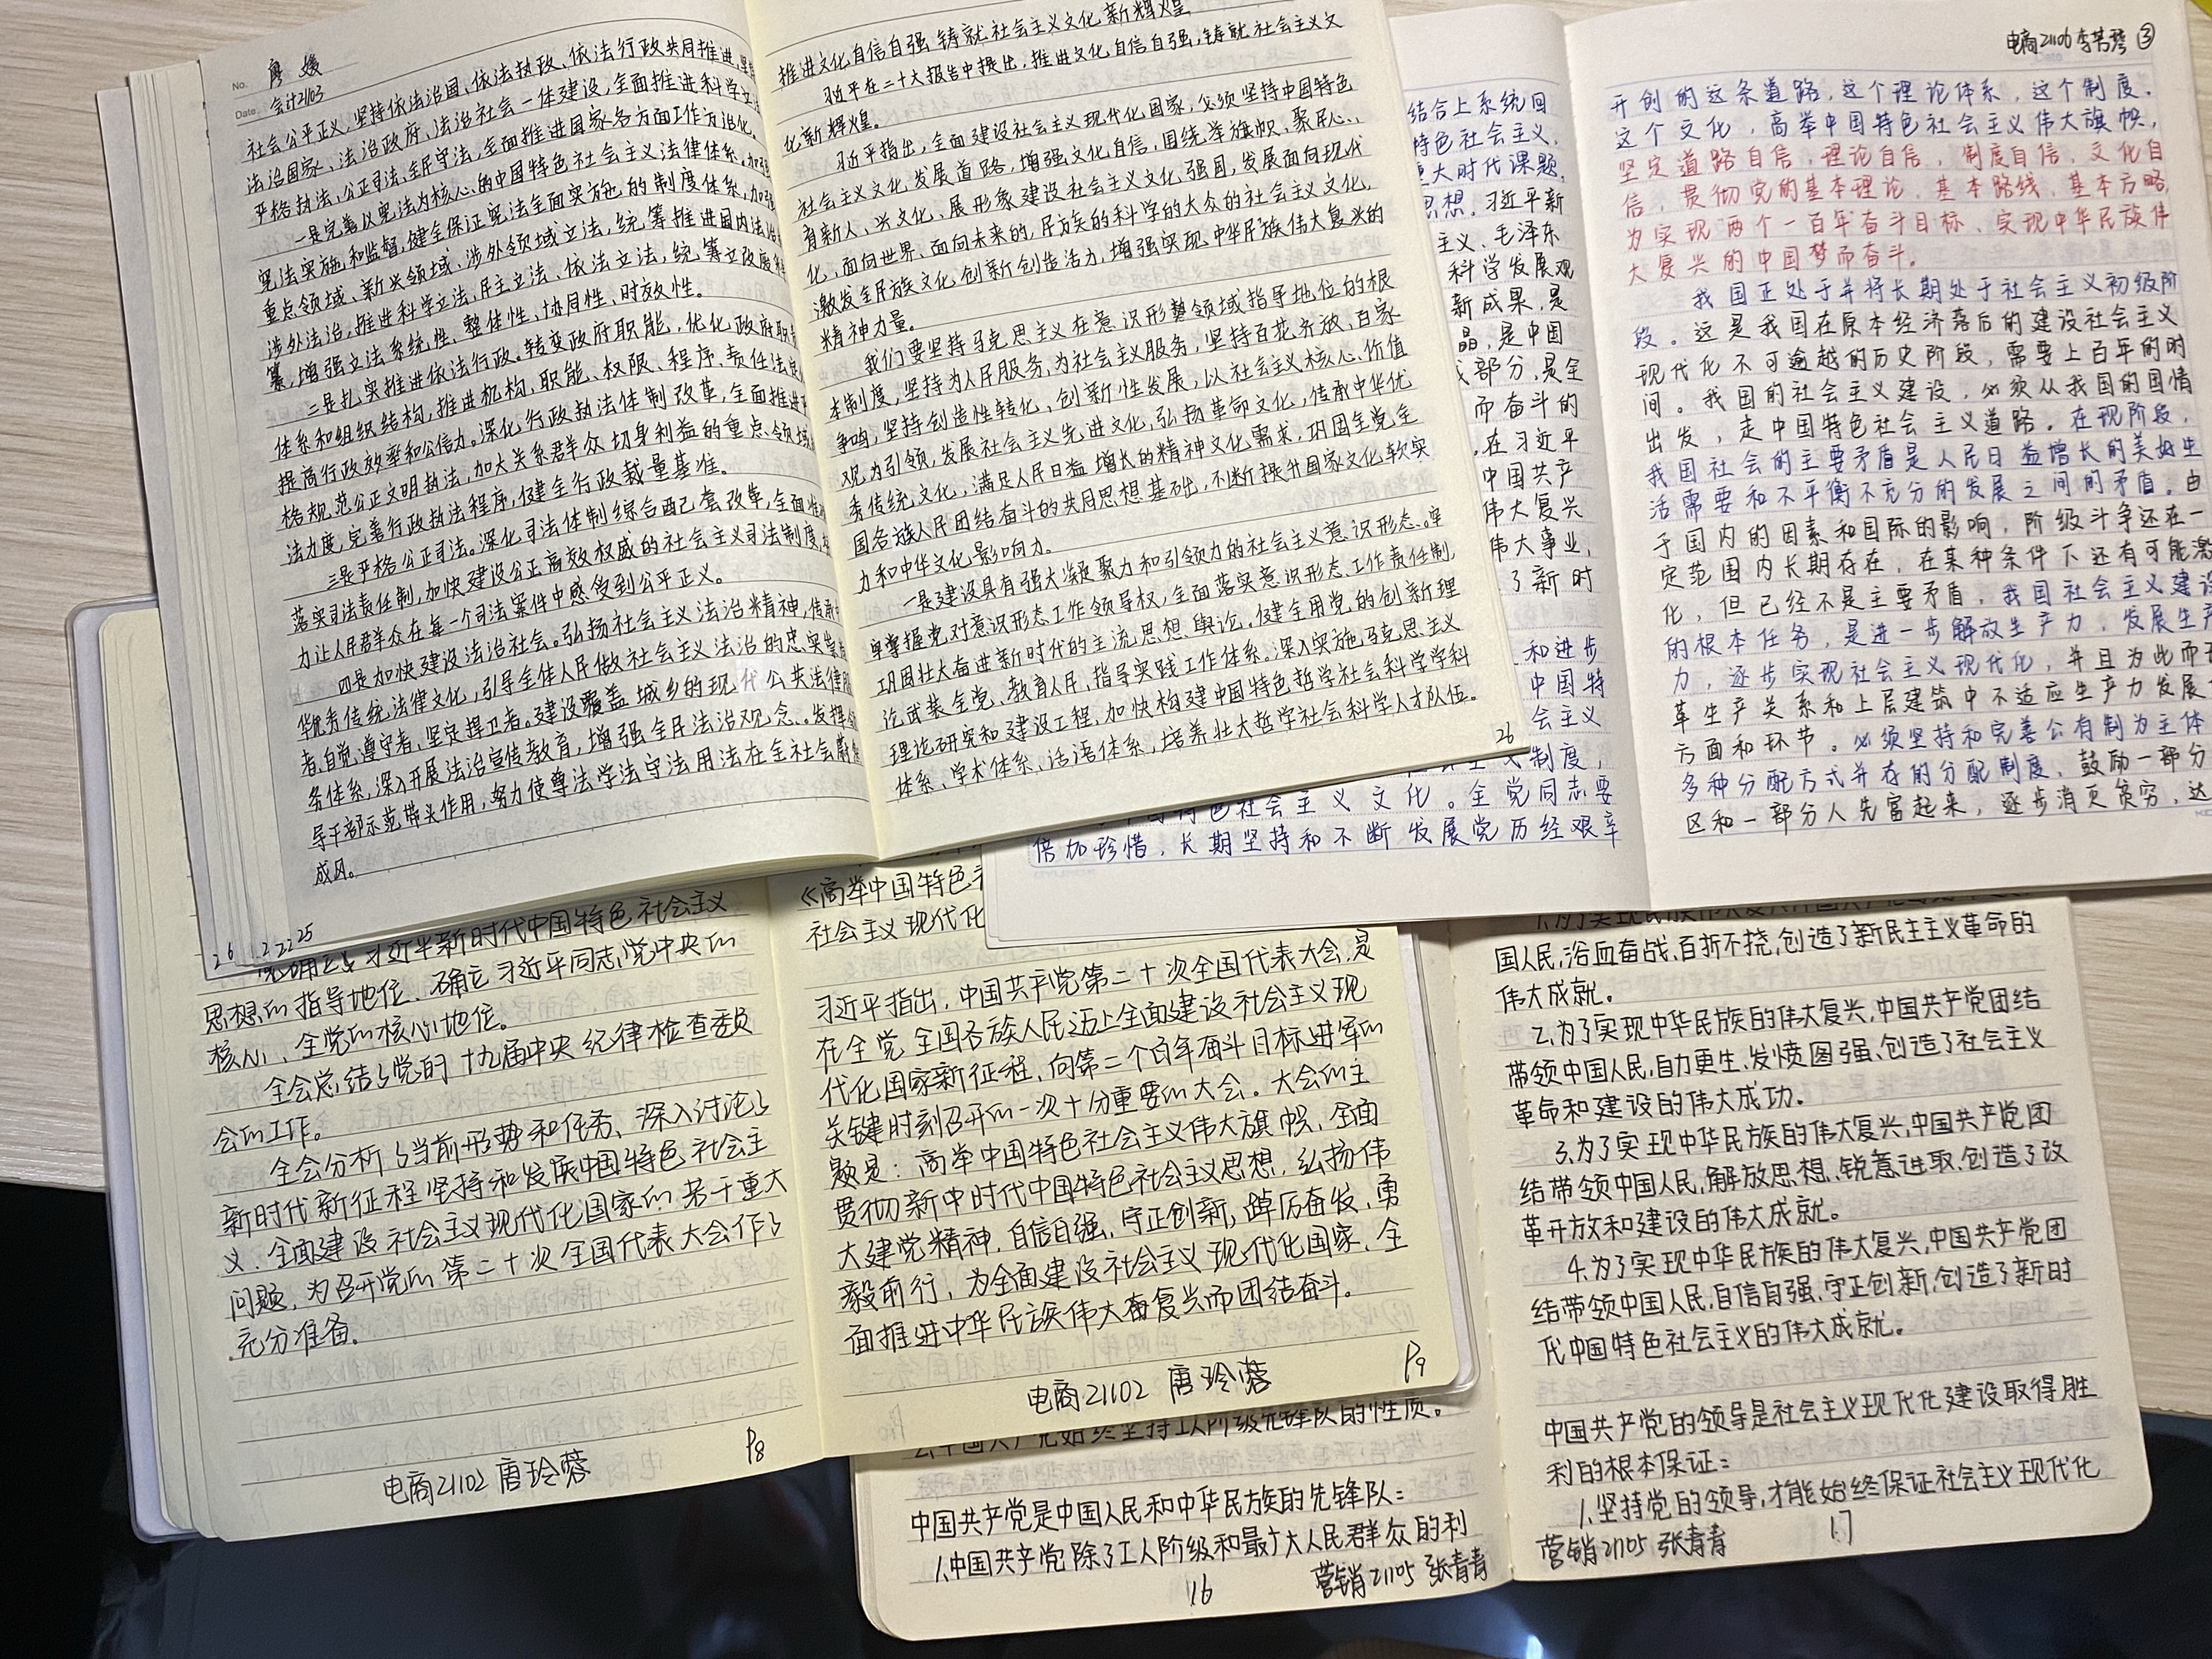 No. 廖媛
Date 会计2103
社会公平正义,坚持依法治国、依法执政、依法行政共同推进,坚
法治国家、法治政府、法治社会一体建设,全面推进科学立法
严格执法、公正司法、全民守法,全面推进国家各方面工作方治化。
一是完善以宪法为核心的中国特色社会主义法律体系。加强
宪法实施和监督,健全保证宪法全面实施的制度体系,加强
重点领域、新兴领域、涉外领域立法,统筹推进国内法治
涉外法治,推进科学立法、民主立法、依法立法,统筹立改废
纂,增强立法系统性、整体性、协同性、时效性。
二是扎实推进依法行政。转变政府职能,优化政府职责
体系和组织结构,推进机构、职能、权限、程序、责任法定
提高行政效率和公信力。深化行政执法体制改革,全面推进严
格规范公正文明执法,加大关系群众切身利益的重点领域
法力度,完善行政执法程序,健全行政裁量基准。
三是严格公正司法。深化司法体制综合配套改革,全面准
落实司法责任制,加快建设公正高效权威的社会主义司法制度,
力让人民群众在每一个司法案件中感受到公平正义。
四是加快建设法治社会。弘扬社会主义法治精神,传承
华优秀传统法律文化,引导全体人民做社会主义法治的忠实崇
者、自觉遵守者、坚定捍卫者。建设覆盖城乡的现代公共法律服
务体系,深入开展法治宣传教育,增强全民法治观念。发挥领
导干部示范带头作用,努力使尊法学法守法用法在全社会蔚
成风。
25
推进文化自信自强 铸就社会主义文化新辉煌
习近平在二十大报告中提出,推进文化自信自强,铸就社会主义文
化新辉煌。
习近平指出,全面建设社会主义现代化国家,必须坚持中国特色
社会主义文化发展道路,增强文化自信,围绕举旗帜、聚民心、
育新人、兴文化、展形象建设社会主义文化强国,发展面向现代
化、面向世界、面向未来的,民族的科学的大众的社会主义文化,
激发全民族文化创新创造活力,增强实现中华民族伟大复兴的
精神力量。
我们要坚持马克思主义在意识形势领域指导地位的根
本制度,坚持为人民服务、为社会主义服务,坚持百花齐放、百家
争鸣,坚持创造性转化、创新性发展,以社会主义核心价值
观为引领,发展社会主义先进文化,弘扬革命文化,传承中华优
秀传统文化,满足人民日益增长的精神文化需求,巩固全党全
国各族人民团结奋斗的共同思想基础,不断提升国家文化软实
力和中华文化影响力。
一是建设具有强大凝聚力和引领力的社会主义意识形态。牢
牢掌握党对意识形态工作领导权,全面落实意识形态工作责任制,
巩固壮大奋进新时代的主流思想舆论,健全用党的创新理
论武装全党、教育人民、指导实践工作体系。深入实施马克思主义
理论研究和建设工程,加快构建中国特色哲学社会科学学科
体系、学术体系、话语体系,培养壮大哲学社会科学人才队伍。
26
结合上系统回
特色社会主义,
重大时代课题,
思想,习近平新
主义、毛泽东
科学发展观
新成果,是
晶,是中国
部分,是全
而奋斗的
在习近平
中国共产
伟大复兴
伟大事业,
了新时
和进步
中国特
会主义
制度,
色社会主义文化。全党同志要
倍加珍惜,长期坚持和不断发展党历经艰辛
电商21106 ③
开创的这条道路,这个理论体系,这个制度,
这个文化,高举中国特色社会主义伟大旗帜,
坚定道路自信,理论自信,制度自信,文化自
信,贯彻党的基本理论、基本路线、基本方略,
为实现两个一百年奋斗目标、实现中华民族伟
大复兴的中国梦而奋斗。
我国正处于并将长期处于社会主义初级阶
段。这是我国在原本经济落后的建设社会主义
现代化不可逾越的历史阶段,需要上百年的时
间。我国的社会主义建设,必须从我国的国情
出发,走中国特色社会主义道路。在现阶段,
我国社会的主要矛盾是人民日益增长的美好生
活需要和不平衡不充分的发展之间的矛盾。由
于国内的因素和国际的影响,阶级斗争还在一
定范围内长期存在,在某种条件下还有可能激
化,但已经不是主要矛盾,我国社会主义建设
的根本任务,是进一步解放生产力,发展生产
力,逐步实现社会主义现代化,并且为此而改
革生产关系和上层建筑中不适应生产力发展
方面和环节。必须坚持和完善公有制为主体
多种分配方式并存的分配制度,鼓励一部分
区和一部分人先富起来,逐步消灭贫穷,达
习近平新时代中国特色社会主义
思想的指导地位、确立习近平同志党中央的
核心、全党的核心地位。
全会总结了党的十九届中央纪律检查委员
会的工作。
全会分析了当前形势和任务、深入讨论了
新时代新征程坚持和发展中国特色社会主
义、全面建设社会主义现代化国家的若干重大
问题,为召开党的第二十次全国代表大会作了
充分准备。
电商21102 唐玲蓉 P8
《高举中国特色
社会主义现代化
习近平指出,中国共产党第二十次全国代表大会,是
在全党全国各族人民迈上全面建设社会主义现
代化国家新征程、向第二个百年奋斗目标进军的
关键时刻召开的一次十分重要的大会。大会的主
题是:高举中国特色社会主义伟大旗帜,全面
贯彻新中时代中国特色社会主义思想,弘扬伟
大建党精神,自信自强、守正创新,踔厉奋发、勇
毅前行,为全面建设社会主义现代化国家、全
面推进中华民族伟大奋复兴而团结奋斗。
电商21102 唐玲蓉 P9
中国共产党始终坚持工人阶级先锋队的性质。
中国共产党是中国人民和中华民族的先锋队:
1.中国共产党除了工人阶级和最广大人民群众的利
16 营销21105 张青青
国人民,浴血奋战、百折不挠,创造了新民主主义革命的
伟大成就。
2.为了实现中华民族的伟大复兴,中国共产党团结
带领中国人民,自力更生、发愤图强、创造了社会主义
革命和建设的伟大成功。
3.为了实现中华民族的伟大复兴,中国共产党团
结带领中国人民,解放思想、锐意进取,创造了改
革开放和建设的伟大成就。
4.为了实现中华民族的伟大复兴,中国共产党团
结带领中国人民,自信自强、守正创新,创造了新时
代中国特色社会主义的伟大成就。
中国共产党的领导是社会主义现代化建设取得胜
利的根本保证:
1.坚持党的领导,才能始终保证社会主义现代化
营销21105 张青青 17